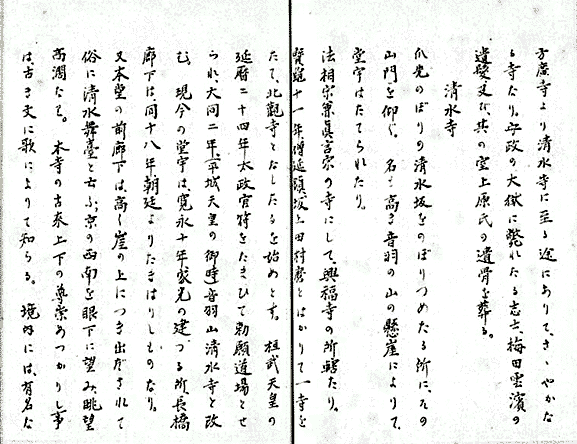 方廣寺より清水寺に至る途にありて、さゝやかな
る寺なり。安政の大獄に斃れたる志士、梅田雲濱の
遺髪又び、其の室上原氏の遺骨を葬る。
清水寺
爪先のぼりの清水坂をのぼりつめたる所に、その
山門を仰ぐ。名も高き音羽の山の懸崖によりて、
堂宇はたてられたり。
法相宗兼眞言宗の寺にして、興福寺の所轄たり。
寶龜十一年僧延鎭、坂上田村麿とはかりて一寺を
たて、北觀寺となしたるを始めとす。桓武天皇の
延暦二十四年太政官符をたまひて勅願道場とせ
られ、大同二年、平城天皇の御時音羽山清水寺と改
む。現今の堂宇は寛永十年家光の建つる所、長橋
廊下は同十八年朝廷よりたまはりしものなり。
又本堂の前廊下は、高く崖の上につき出だされて
俗に清水舞臺と云ふ。京の西南を眼下に望み、眺望
高濶たり。本寺の古來上下の尊崇あつかりし事
は、古き文に歌によりて知らる。境内には、有名な